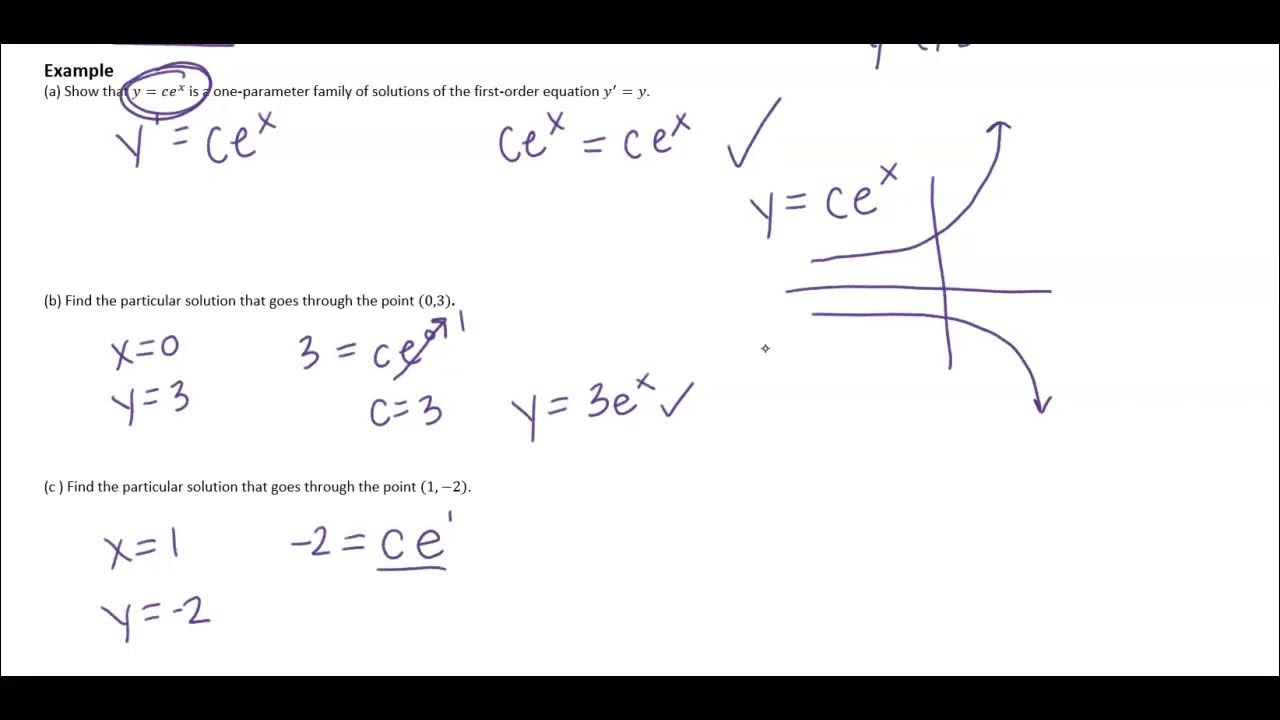 Example
(a) Show that y = ceˣ is a one-parameter family of solutions of the first-order equation y′ = y.
y' = ceˣ
ceˣ = ceˣ ✓
y = ceˣ
(b) Find the particular solution that goes through the point (0,3).
x=0
3 = ce⁰ 1
y=3
c=3
y = 3eˣ ✓
(c ) Find the particular solution that goes through the point (1, −2).
x=1
-2 = ce¹
y=-2